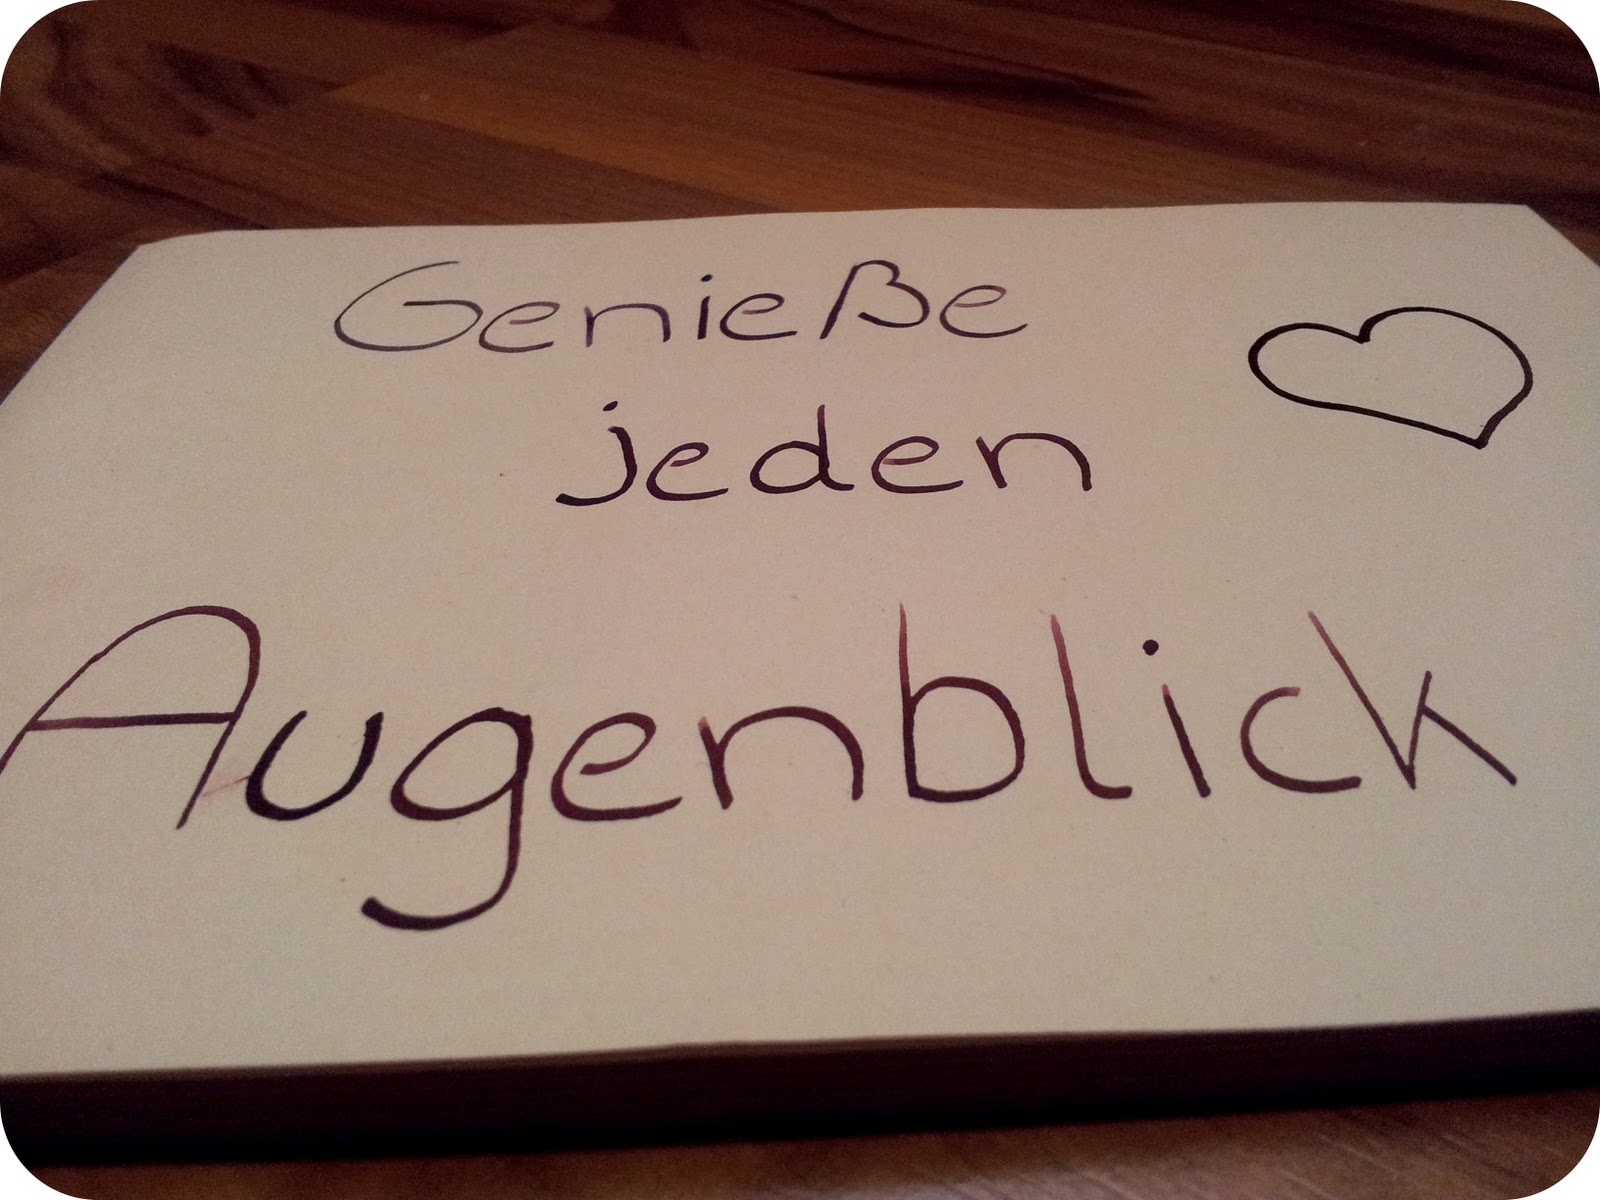 Genieße
jeden
Augenblick